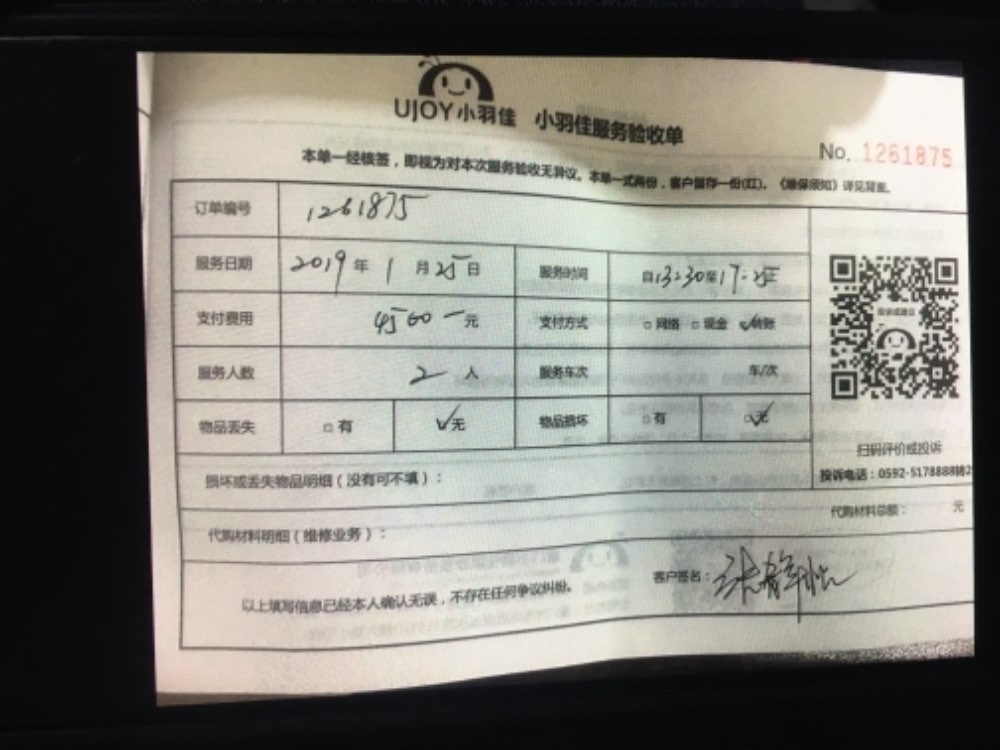 UJOY小羽佳 小羽佳服务验收单
No. 1261875
本单一经核签，即视为对本次服务验收无异议。本单一式两份，客户留存一份(红)。《维保须知》详见背面。
订单编号 1261875
服务日期 2019年1月25日 服务时间 自13:30至17:25
支付费用 4500一元 支付方式 □网络 □现金 ✓转账
服务人数 2人 服务车次 车/次
物品丢失 □有 ✓无 物品损坏 □有 ✓无
扫码评价或投诉
投诉电话：0592-5178888转2
损坏或丢失物品明细（没有可不填）：
代购材料明细（维修业务）： 代购材料总额： 元
以上填写信息已经本人确认无误，不存在任何争议纠纷。 客户签名：